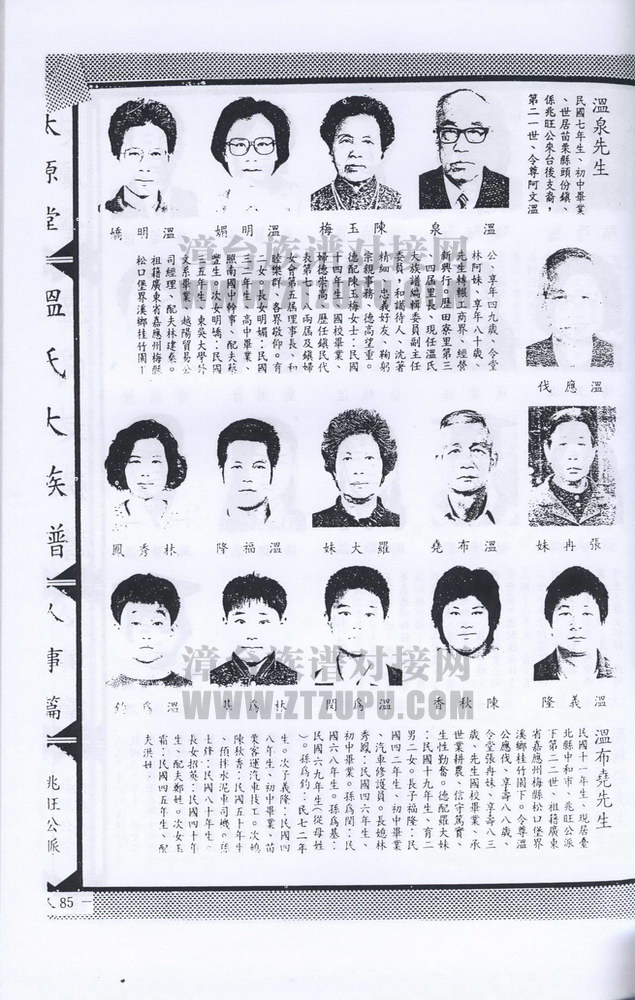 溫泉先生
民國七年生、初中畢業
、世居苗栗縣頭份鎮、
係兆旺公來台後支裔，
第二一世、令尊阿文溫
公、享年四九歲、令堂
林阿妹、享年八十歲、
先生轉報工商界、經營
新興行。歷田寮里第三
、四屆里長、現任溫氏
大族譜編輯委員副主任
委員，和藹待人、沈著
精細、忠義好友、鞠躬
宗親事務、德高望重。
德配陳玉梅女士：民國
十四年生、國校畢業、
婦德崇高。歷任鎮民代
表第七、八兩屆及鎮婦
女會第五屆理事長、和
睦樂群、各界敬仰。育
二女、長女明媚：民國
三二年生、高中畢業、
照南國中幹事、配夫蔡
豐生。次女明嬌：民國
三五年生、東吳大學外
文系畢業、越陽貿易公
司經理、配夫林建泰。
祖籍廣東省嘉應州梅縣
松口堡界溪鄉桂竹閣下
溫泉
陳玉梅
溫明媚
溫明嬌
溫應伐
張冉妹
溫布堯
羅大妹
溫福隆
林秀鳳
溫義隆
陳秋香
溫為閔
溫布堯先生
民國十一年生、現居臺
北縣中和市、兆旺公派
下第二二世、祖籍廣東
省嘉應州梅縣松口堡界
溪鄉桂竹閣下。令尊溫
公應伐、享壽八八歲、
令堂張冉妹、享壽八三
歲、先生國校畢業、承
世業耕農、信守篤實、
生性勤奮。德配羅大妹
：民國十九年生、育二
男二女。長子福隆：民
國四二年生、初中畢業
、汽車修護員。長媳林
秀鳳：民國四六年生、
初中畢業。孫為閔：民
國六八年生。孫為基：
民國六九年生（從母姓
）。孫為鈞：民七二年
生。次子義隆：民國四
八年生、初中畢業、苗
栗客運汽車技工。次媳
陳秋香：民國五十年生
、預拌水泥車司機。孫
士鋒：民國八十年生。
長女招英：民國四十年
生、配夫鄭姓。次女玉
霜：民國四五年生、配
夫洪姓
太原堂
溫氏大族譜
人事篇
兆旺公派
人 85
漳台族谱对接网
WWW.ZTZUPU.COM
漳台族谱对接网
WWW.ZTZUPU.COM